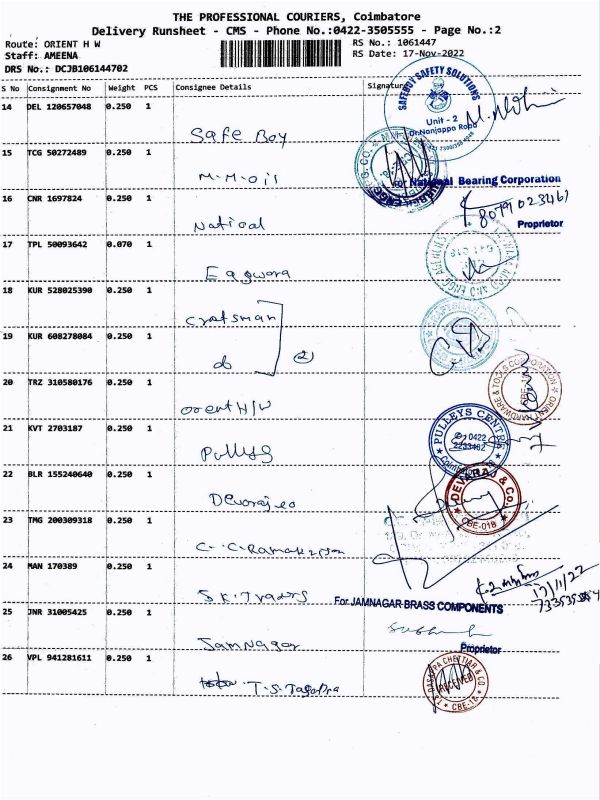 THE PROFESSIONAL COURIERS, Coimbatore
Delivery Runsheet - CMS - Phone No.:0422-3505555 - Page No.:2
Route: ORIENT H W
RS No.: 1061447
Staff: AMEENA
RS Date: 17-Nov-2022
DRS No.: DCJB106144702
S No Consignment No Weight PCS Consignee Details Signature
14 DEL 120657048 0.250 1
SAFEBOY SAFETY SOLUTIONS
Unit - 2
Dr.Nanjappa Road
Safe Boy
15 TCG 50272489 0.250 1
M.M.oil
For National Bearing Corporation
16 CNR 1697824 0.250 1
8079023461
Proprietor
Natical
17 TPL 50093642 0.070 1
Eagwora
18 KUR 528025390 0.250 1
Craftsman
19 KUR 608278084 0.250 1
do 2
20 TRZ 310580176 0.250 1
ORIENT HARDWARE & TOOLS CORPORATION
CBE-1
Orent H/W
21 KVT 2703187 0.250 1
PULLEYS CENTRE
0422
Coimbatore
Pulleys
22 BLR 155240640 0.250 1
DEVARAJ & Co.
CBE-018
Devoraj co
23 TMG 200309318 0.250 1
C. C. Ramakrisan
24 MAN 170389 0.250 1
17/11/22
S.K. Traders
For JAMNAGAR BRASS COMPONENTS
25 JNR 31005425 0.250 1
Proprietor
Jamnagar
26 VPL 941281611 0.250 1
T. DASAPPA CHETTIAR & CO.
RECEIVED
CBE-18
T.S. Dasappa